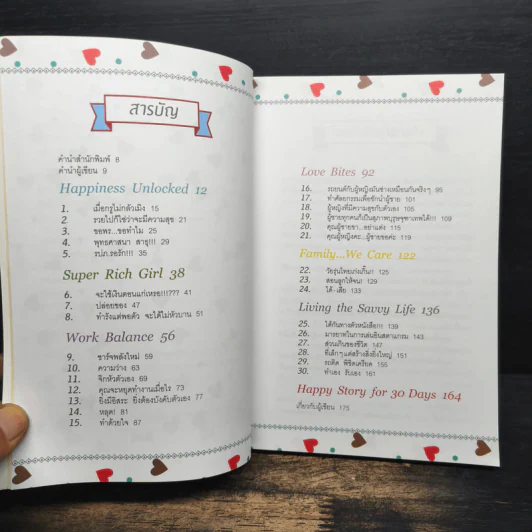 สารบัญ
คำนำสำนักพิมพ์ 8
คำนำผู้เขียน 9
Happiness Unlocked 12
1. เมื่อกรูไม่กลัวเมิง 15
2. รวยไปก็ใช่ว่าจะมีความสุข 21
3. ขอพร...ขอทำไม 25
4. พุทธศาสนา สาธุ!!! 29
5. รปภ.รอรัก!!! 35
Super Rich Girl 38
6. จะใช้เงินตอนแก่เหรอ!!!??? 41
7. ปล่อยของ 47
8. ทำรังแต่พอตัว จะได้ไม่หัวบาน 51
Work Balance 56
9. ชาร์จพลังใหม่ 59
10. ความว่าง 63
11. จิกหัวตัวเอง 69
12. คุณจะหยุดทำงานเมื่อไร 73
13. ยิ่งมีอิสระ ยิ่งต้องบังคับตัวเอง 77
14. หลุด! 81
15. ทำด้วยใจ 87
Love Bites 92
16. รถยนต์กับผู้หญิงมันช่างเหมือนกันจริงๆ 95
17. ทำศัลยกรรมเพื่อชักนำผู้ชาย 101
18. ผู้หญิงที่มีความสุขกับตัวเอง 105
19. ผู้ชายทุกคนก็เป็นสุภาพบุรุษจุฑาเทพได้!!! 109
20. คุณผู้ชายขา...อย่าแต่ง 115
21. คุณผู้หญิงคะ...ผู้ชายขอค่ะ 119
Family...We Care 122
22. วัยรุ่นไทยเก่งเกิ๊น!! 125
23. สอนลูกให้จน! 129
24. ได้-เสีย 133
Living the Savvy Life 136
25. ได้กันทางตัวหนังสือ!!! 139
26. มารยาทในการเล่นอินสตาแกรม 143
27. ส่วนเกินของชีวิต 147
28. ที่เล็กๆแต่สร้างสิ่งยิ่งใหญ่ 151
29. รถติด พิชิตเครียด 155
30. ทำเอง รับเอง 161
Happy Story for 30 Days 164
เกี่ยวกับผู้เขียน 175